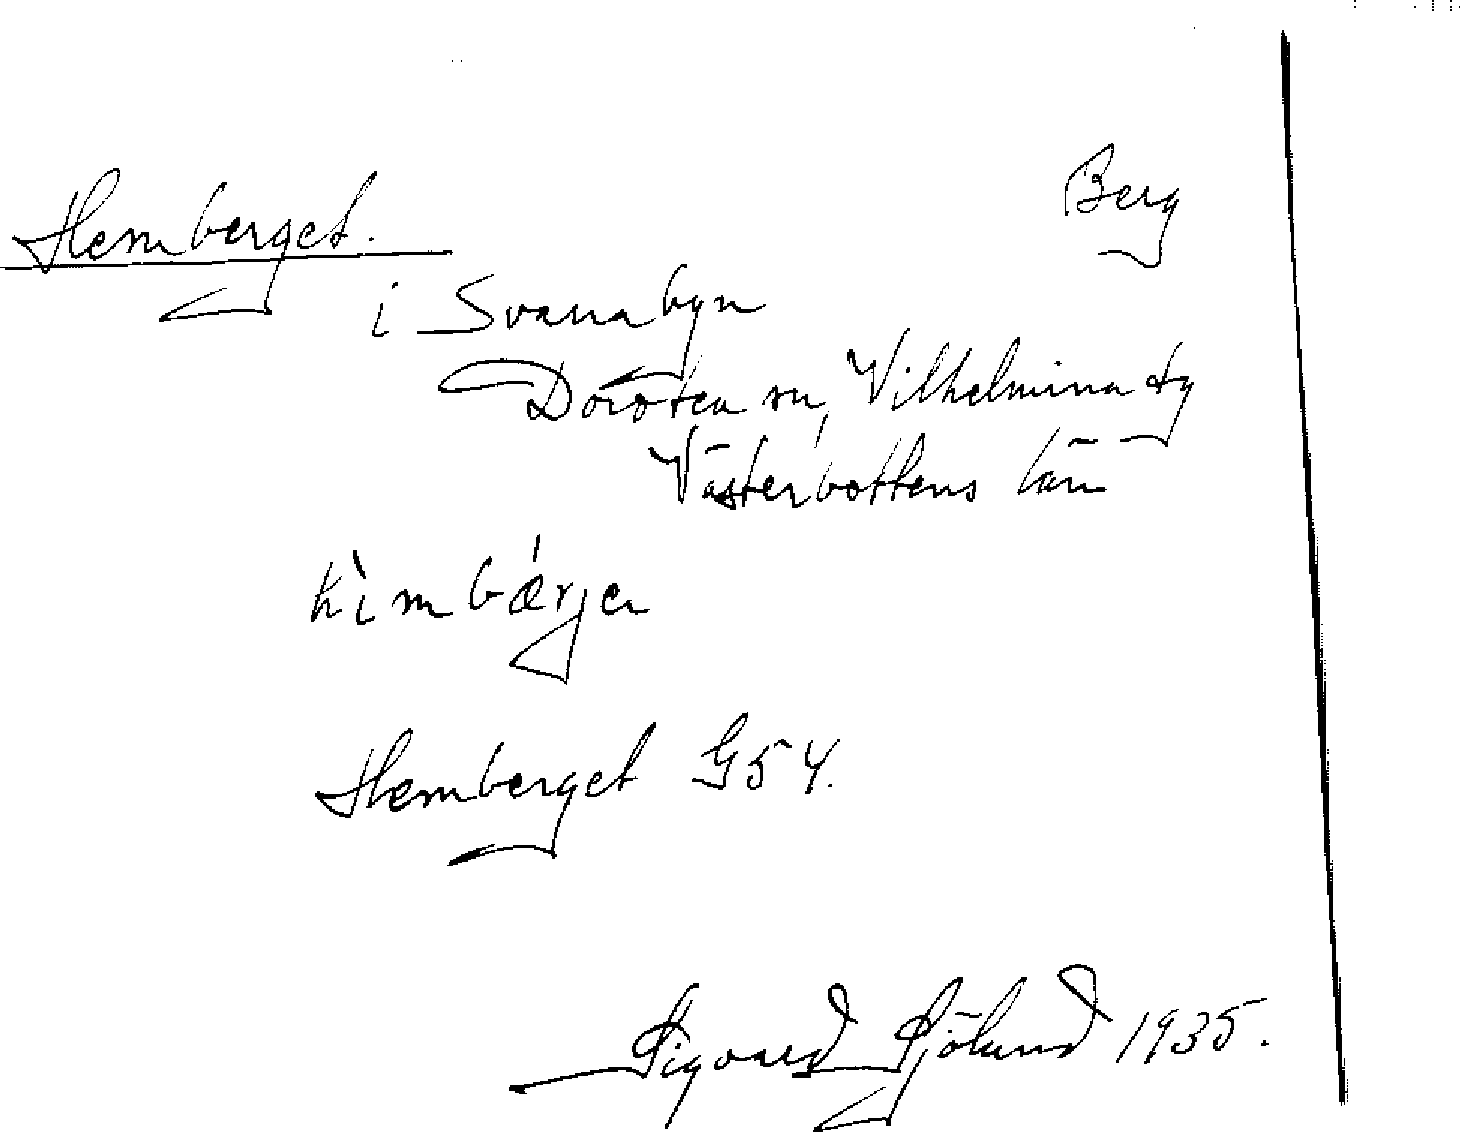 Hemberget. Berg
i Svanabyn
Dorotea sn, Vilhelmina tg
Västerbottens län
hìmbǽrjen
Hemberget G54.
Sigvard Sjölund 1935.